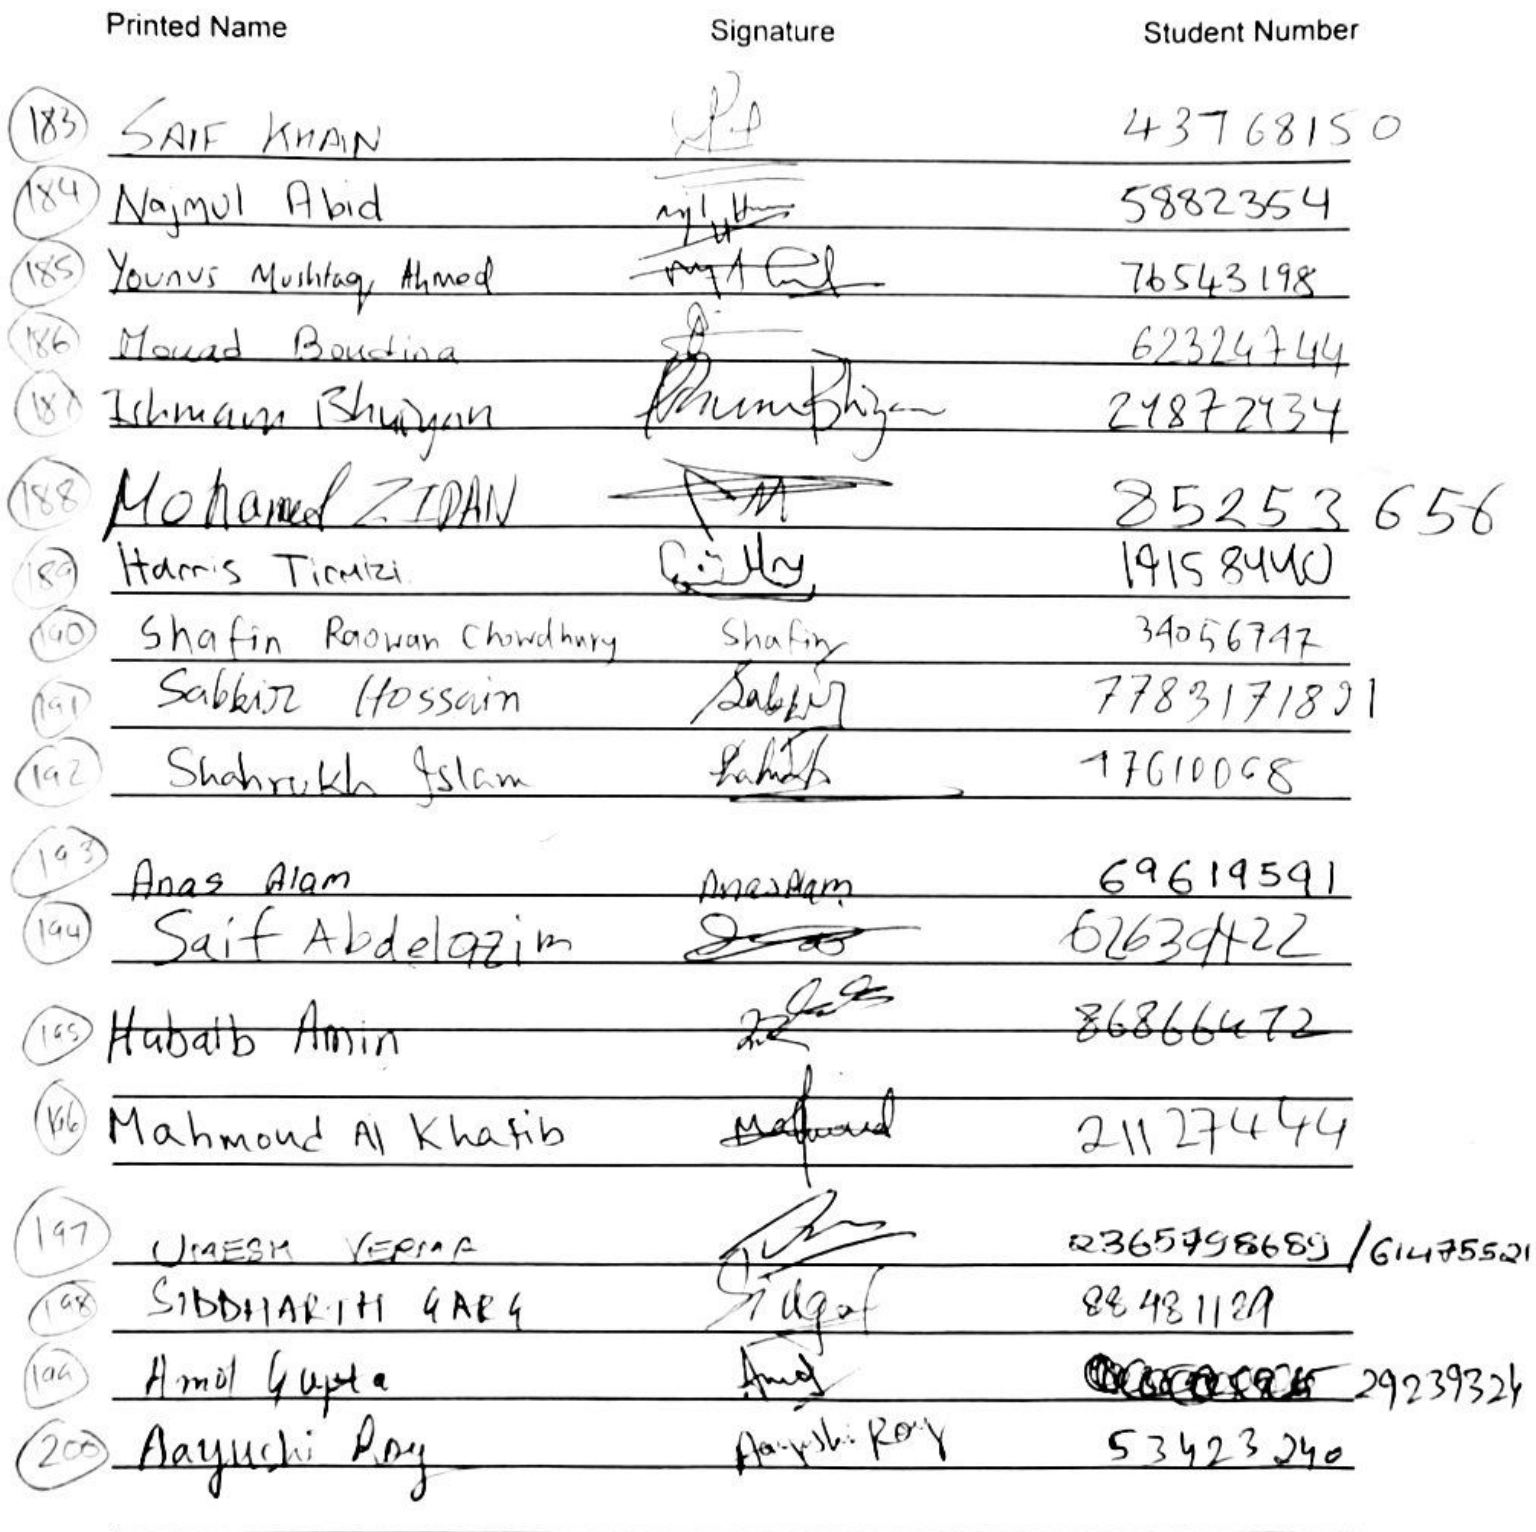 Printed Name Signature Student Number
183 SAIF KHAN 43768150
184 Najmul Abid 5882354
185 Younus Mushtaq Ahmed 76543198
186 Mouad Boudina 62324744
187 Ishmam Bhuiyan 21872434
188 Mohamed ZIDAN 85253656
189 Harris Tirmizi 19158440
190 Shafin Raowan Chowdhury Shafin 34056747
191 Sabbir Hossain Sabbir
192 Shahrukh Islam 17610068
193 Anas Alam Anas Alam 69619591
194 Saif Abdelazim
195 Habaib Amin 86866472
196 Mahmoud Al Khatib Mahmoud 21127444
197 UMESH VERMA 2365798689 / 61475521
198 SIDDHARTH GARG 88481129
199 Amol Gupta Amol 29239324
200 Aayuchi Roy Aayushi Roy 53423240